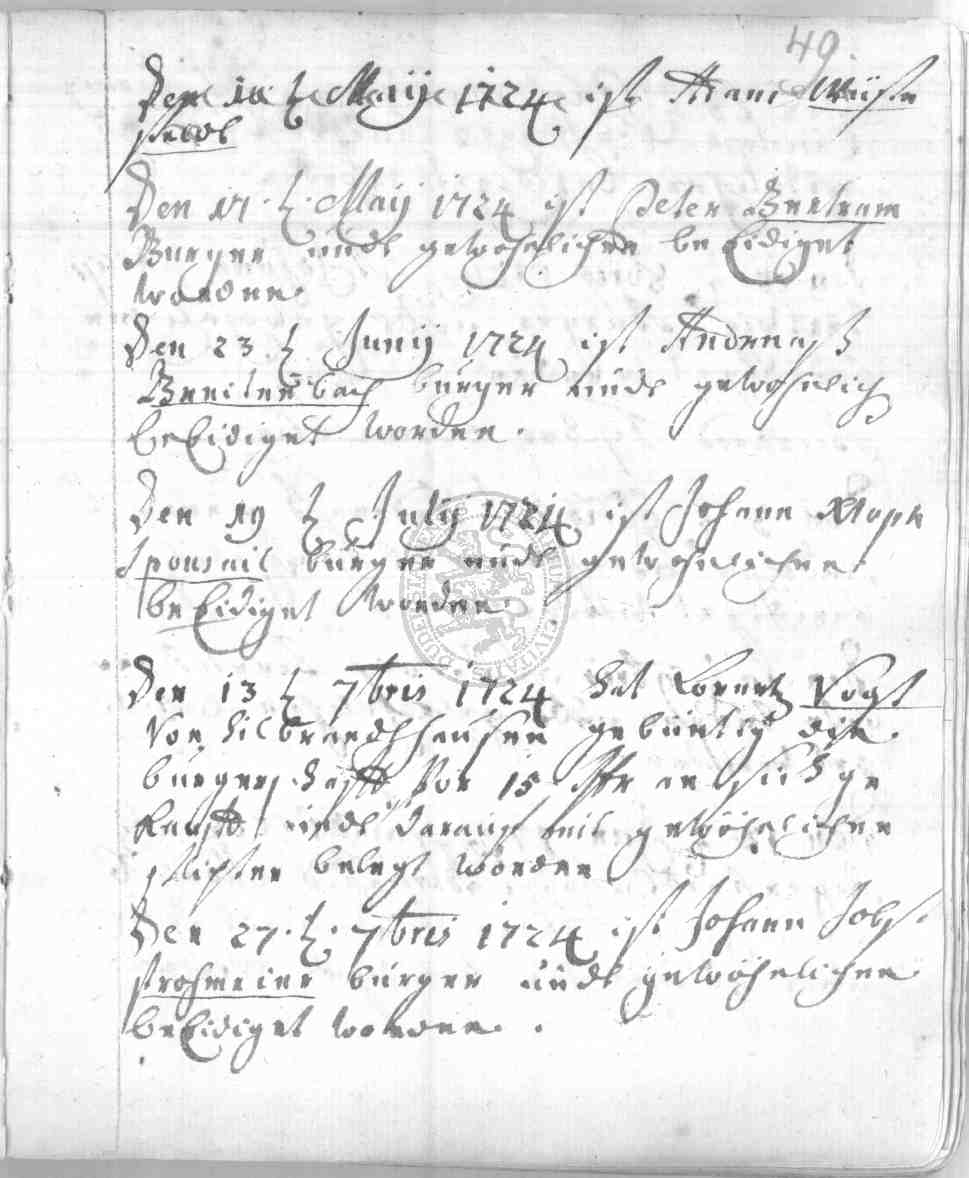 49
Den 10 t. Maij 1724 ist Hans Wüste
feldt
Den 17. t. Maij 1724 ist Peter Bertram
Burger undt gewöhnlicher beEidiget
worden.
Den 23 t. Junij 1724 ist Andreaß
Breitenbach burger undt gewöhnlich
beEidiget worden.
Den 19 t. Julij 1724 ist Johann
Sponsail burger undt gewöhnlicher
beEidiget worden.
Den 13 t. 7bris 1724 hat Lorentz Vogt
Von Hilbrandshausen gebürtig die
burgerschafft vor 15 an sich ge
kaufft undt darauf mit gewöhnlicher
pflichten belegt worden
Den 27. t. 7bris 1724 ist Johann Jobst
strohmeier burger undt gewöhnlicher
beEidiget worden.